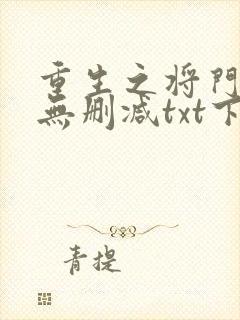 重生之将門
無删减txt下
青提